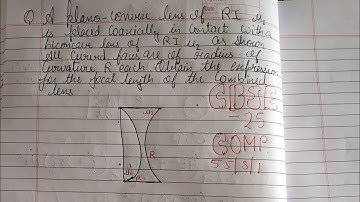 Q A plano-convex lens of RI μ1
is placed coaxically in contact with a
biconcave lens of RI μ2 as shown
All curved faces are of radius of
curvature, R each. Obtain the expression
for the focal length of the combined
lens
CBSE
-25
COMP
55/3/1
μ2
R
μ1
R